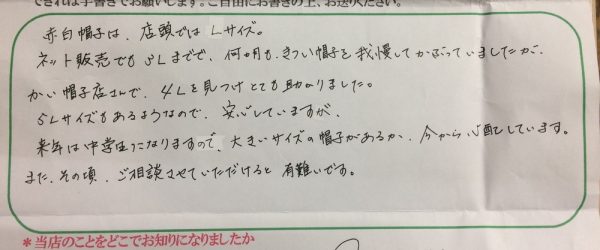 できれば手書きでお願いします。ご自由にお書きの上、お送りください。
赤白帽子は、店頭ではLサイズ。
ネット販売でも3Lまでで、何ヶ月も、きつい帽子を我慢してかぶっていましたが、
かい帽子店さんで、4Lを見つけとても助かりました。
5Lサイズもあるようなので、安心していますが、
来年は中学生になりますので、大きいサイズの帽子があるか、今から心配しています。
また、その頃、ご相談させていただけると有難いです。
*当店のことをどこでお知りになりましたか